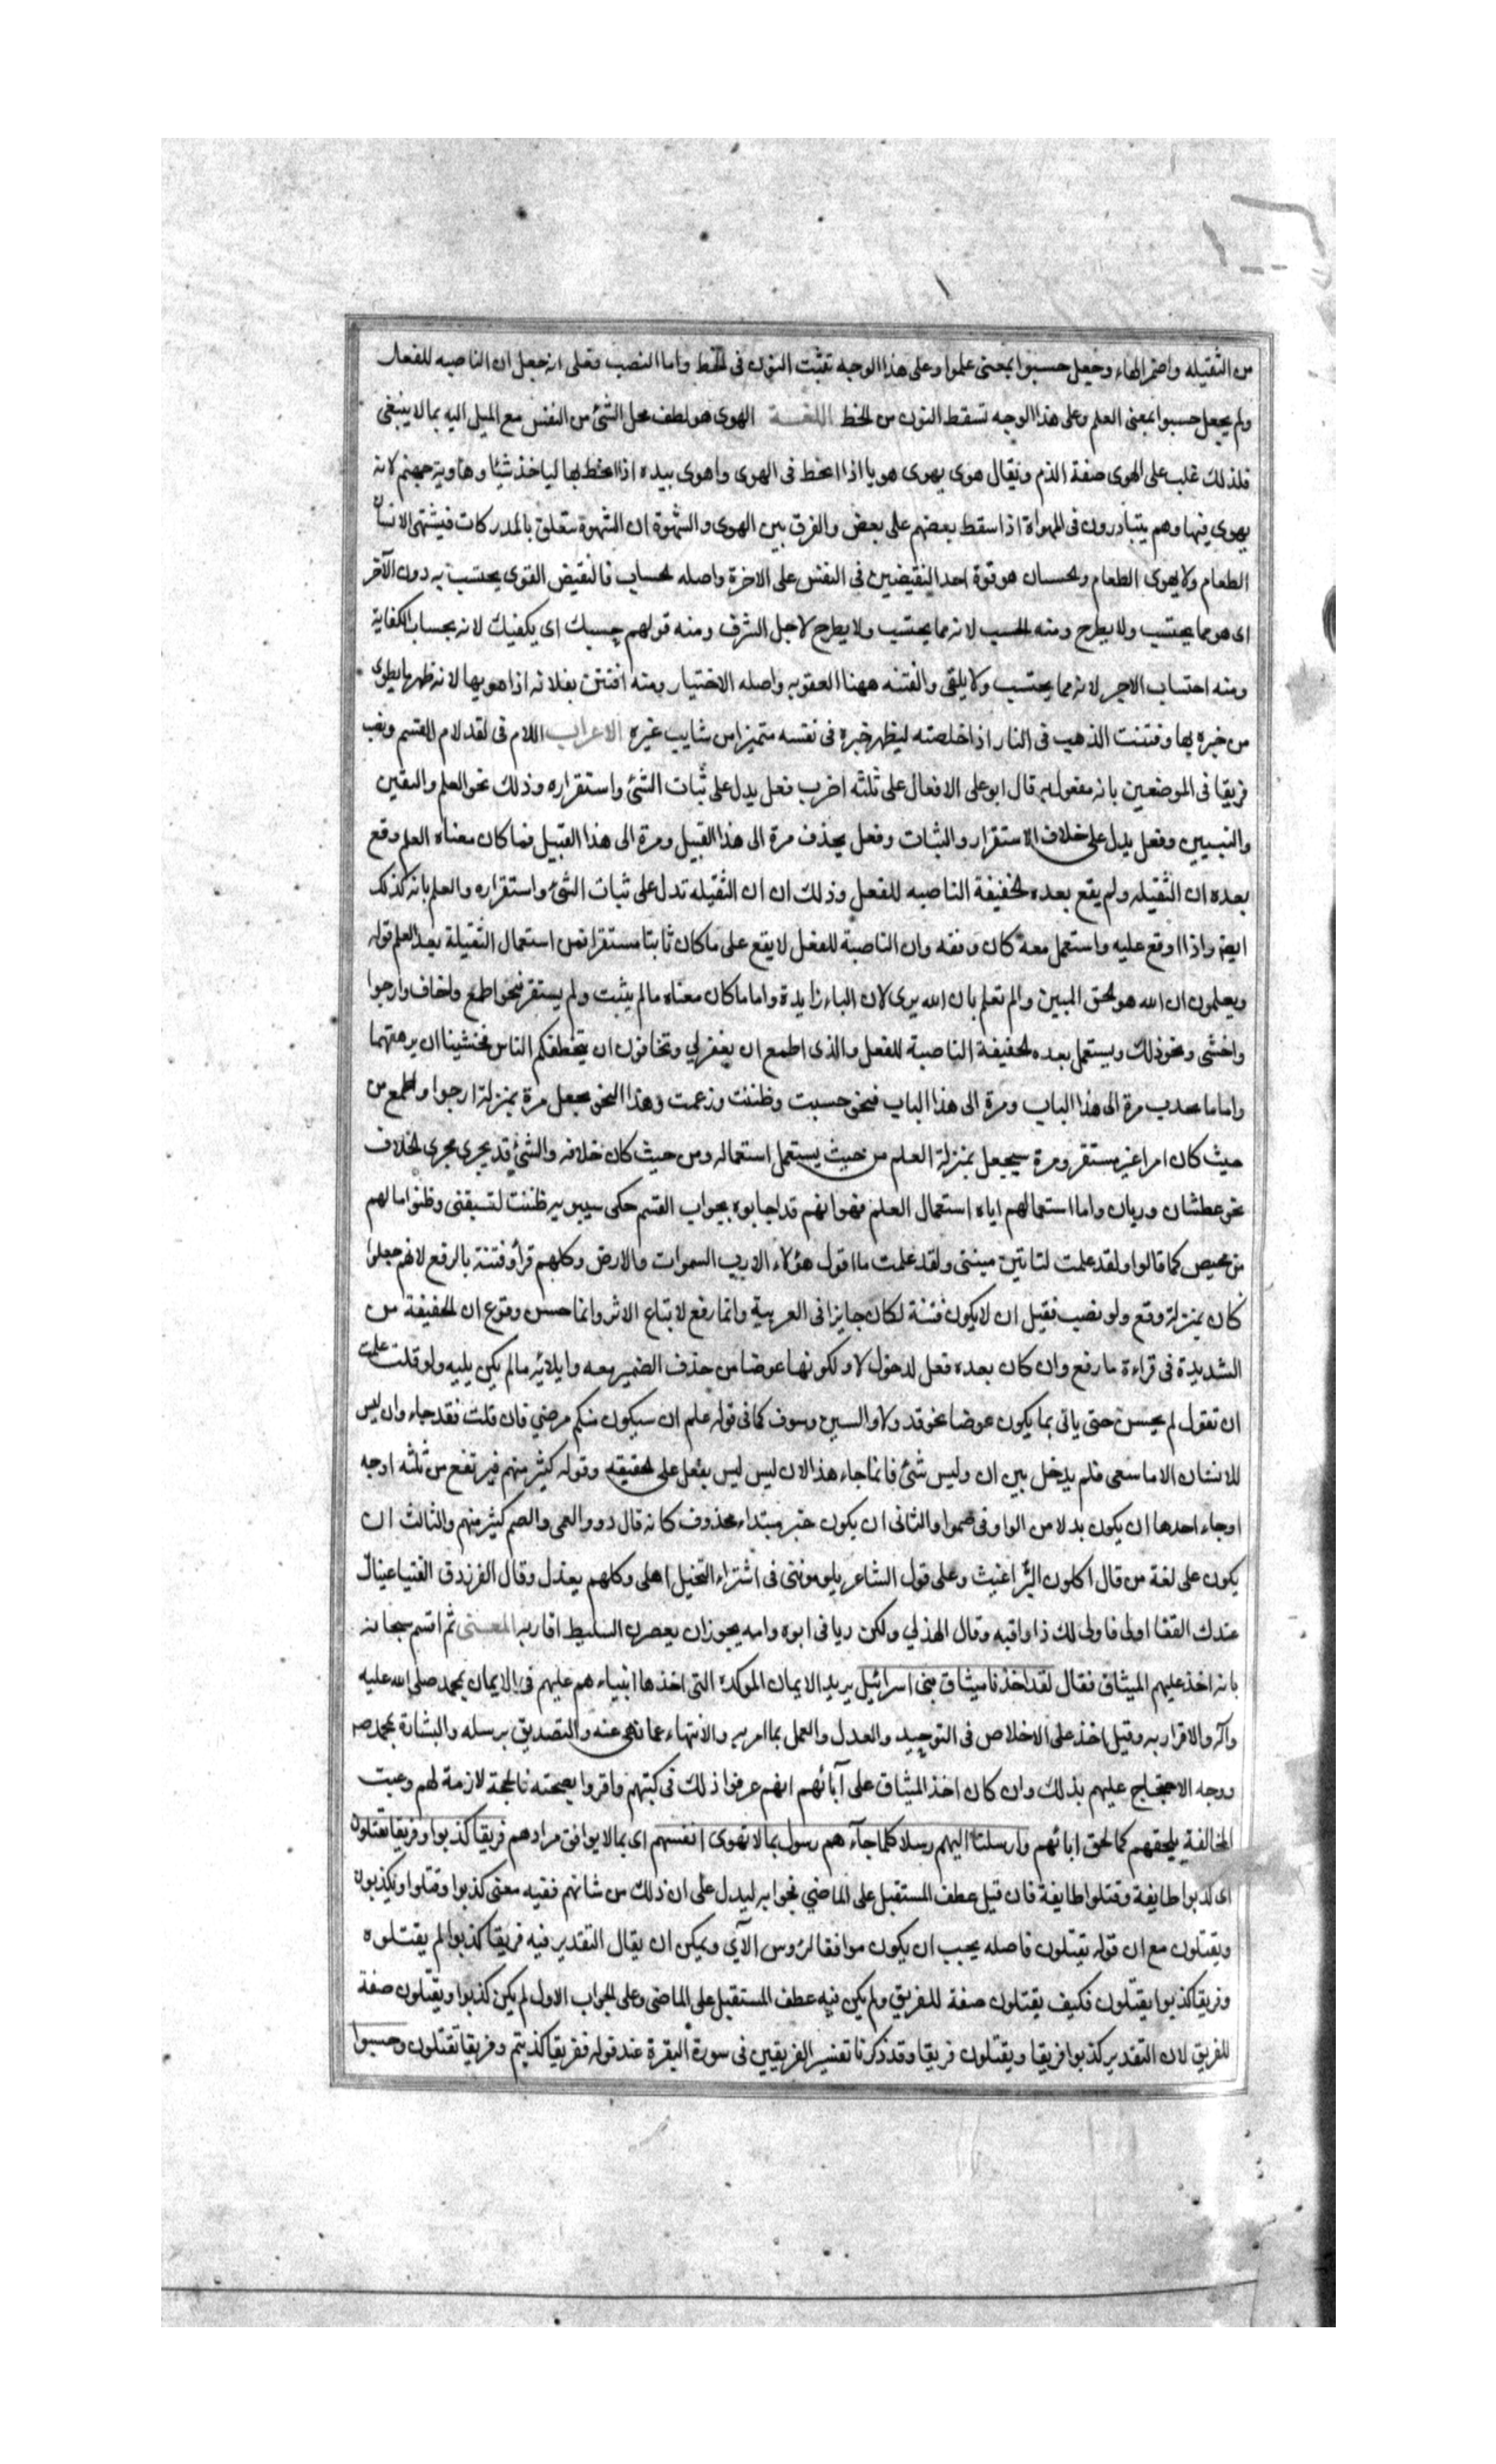 من الثقيلة واضمر الهاء وجعل حسبوا بمعنى علموا وعلى هذا الوجه تثبت النون فى الخط واما النصب فعلى انه جعل ان الناصبه للفعل
ولم يجعل حسبوا بمعنى العلم وعلى هذا الوجه تسقط النون من الخط اللغـــة الهوى هو لطف محل الشئ من النفس مع الميل اليه بما لا ينبغى
فلذلك غلب على الهوى صفة الذم ويقال هوى يهوى هويا اذا انحط فى الهوى واهوى بيده اذا انحط بها لياخذ شيئا وهاوية جهنم لانه
يهوى فيها وهم يتبادرون فى المهواة اذا سقط بعضهم على بعض والفرق بين الهوى والشهوة ان الشهوة تتعلق بالمدركات فيشتهى الانسان
الطعام ولا يهوى الطعام والحسبان هو قوة احد النقيضين فى النفس على الاخرة واصله الحساب فالنقيض القوى يحتسب به دون الآخر
اى هو مما يحتسب ولا يطرح ومنه الحسب لانه مما يحتسب ولا يطرح لاجل الشرف ومنه قولهم حسبك اى يكفيك لانه بحساب الكفاية
ومنه احتساب الاجر لانه مما يحتسب ولا يلقى والفتنه ههنا العقوبه واصله الاختبار ومنه افتتن بفلانه اذا هويها لانه ظهر ما يطوى
من خبره بها وفتنت الذهب فى النار اذا خلصته ليظهر خبره فى نفسه متميزا من شايب غيره الاعراب اللام فى لقد لام القسم ونصب
فريقا فى الموضعين بانه مفعول به قال ابو على الافعال على ثلثه اضرب فعل يدل على ثبات الشئ واستقراره وذلك نحو العلم واليقين
والتبيين وفعل يدل على خلاف الاستقرار والثبات وفعل يجذف مرة الى هذا القبيل ومرة الى هذا القبيل فما كان معناه العلم وقع
بعده ان الثقيله ولم يقع بعده الخفيفة الناصبه للفعل وذلك ان ان الثقيله تدل على ثبات الشئ واستقراره والعلم بانه كذلك
ايضا واذا اوقع عليه واستعمل معه كان وفقه وان الناصبة للفعل لا يقع على ما كان ثابتا مستقرا فمن استعمال الثقيلة بعد العلم قوله
ويعلمون ان الله هو الحق المبين والم تعلم بان الله يرى لان الباء زايدة واما ما كان معناه مالم يثبت ولم يستقر فنحو اطمع واخاف وارجوا
واخشى ونحو ذلك ويستعمل بعده الخفيفة الناصبة للفعل والذى اطمع ان يغفر لي وتخافون ان يتخطفكم الناس فخشينا ان يرهقهما
واما ما يجذب مرة الى هذا الباب ومرة الى هذا الباب فنحو حسبت وظننت وزعمت وهذا النحو يجعل مرة بمنزلة ارجوا واطمع من
حيث كان امرا غير مستقر ومرة يجعل بمنزلة العلم من حيث يستعمل استعماله ومن حيث كان خلافه والشئ قد يجرى مجرى الخلاف
نحو عطشان وريان واما استعمالهم اياه استعمال العلم فهو انهم قد اجابوه بجواب القسم حكى سيبويه ظننت لتسبقنى وظنوا ما لهم
من محيص كما قالوا ولقد علمت لتاتين منيتى ولقد علمت ما اقول هؤلاء الا رب السموات والارض وكلهم قرأ وفتنة بالرفع لانهم جعلوا
كان بمنزلة وقع ولو نصب فقيل ان لا يكون فتنة لكان جايزا فى العربية وانما رفع لاتباع الاثر وانما حسن وقوع ان الخفيفة من
الشديدة فى قراءة ما رفع وان كان بعده فعل لدخول لا ولكونها عوضا من حذف الضمير معه وايلائه مالم يكن يليه ولو قلت علمت
ان تقول لم يحسن حتى ياتى بما يكون عوضا نحو قد ولا والسين وسوف كما فى قوله علم ان سيكون منكم مرضي فان قلت فقد جاء وان ليس
للانسان الا ما سعى فلم يدخل بين ان وليس شئ فانما جاء هذا لان ليس ليس بفعل على الحقيقه وقوله كثير منهم فيرتفع من ثلثه اوجه
اوجه احدها ان يكون بدلا من الواو فى صموا والثانى ان يكون خبر مبتداء محذوف كانه قال ذوو العمى والصم كثير منهم والثالث ان
يكون على لغة من قال اكلون البراغيث وعلى قول الشاعر يلومونتى فى اشتراء النخيل اهلى وكلهم يعذل وقال الفرزدق الفتيا عيناك
عندك القفا اولى فاولى لك ذا واقيه وقال الهذلي ولكن ديافى ابوه وامه بحوران يعصرن السليط اقاربه المعـــنى ثم اقسم سبحانه
بانه اخذ عليهم الميثاق فقال لقد اخذنا ميثاق بنى اسرائيل يريد الايمان الموكدة التى اخذها انبياءهم عليهم فى الايمان بمحمد صلى الله عليه
وآله والاقرار به وقيل اخذ على الاخلاص فى التوحيد والعدل والعمل بما امر به والانتهاء عما نهى عنه والتصديق برسله والبشارة بمحمد ص
ووجه الاحتجاج عليهم بذلك وان كان اخذ الميثاق على آبائهم انهم عرفوا ذلك فى كتبهم واقروا بصحته فالحجة لازمة لهم وعيب
المخالفة يلحقهم كما لحق اباءهم وارسلنا اليهم رسلا كلما جآءهم رسول بما لا تهوى انفسهم اى بما لا يوافق مرادهم فريقا كذبوا وفريقا يقتلون
اى كذبوا طايفة وقتلوا طايفة فان قيل عطف المستقبل على الماضي فجوابه ليدل على ان ذلك من شانهم ففيه معنى كذبوا وقتلوا ويكذبون
ويقتلون مع ان قوله يقتلون فاصله يجب ان يكون موافقا لرؤس الآي ويمكن ان يقال التقدير فيه فريقا كذبوا لم يقتلوه
وفريقا كذبوا يقتلون فكيف يقتلون صفة للفريق ولم يكن فيه عطف المستقبل على الماضى وعلى الجواب الاول لم يكن كذبوا ويقتلون صفة
للفريق لان التقدير كذبوا فريقا ويقتلون فريقا وقد ذكرنا تفسير الفريقين فى سورة البقرة عند قوله ففريقا كذبتم وفريقا تقتلون وحسبوا